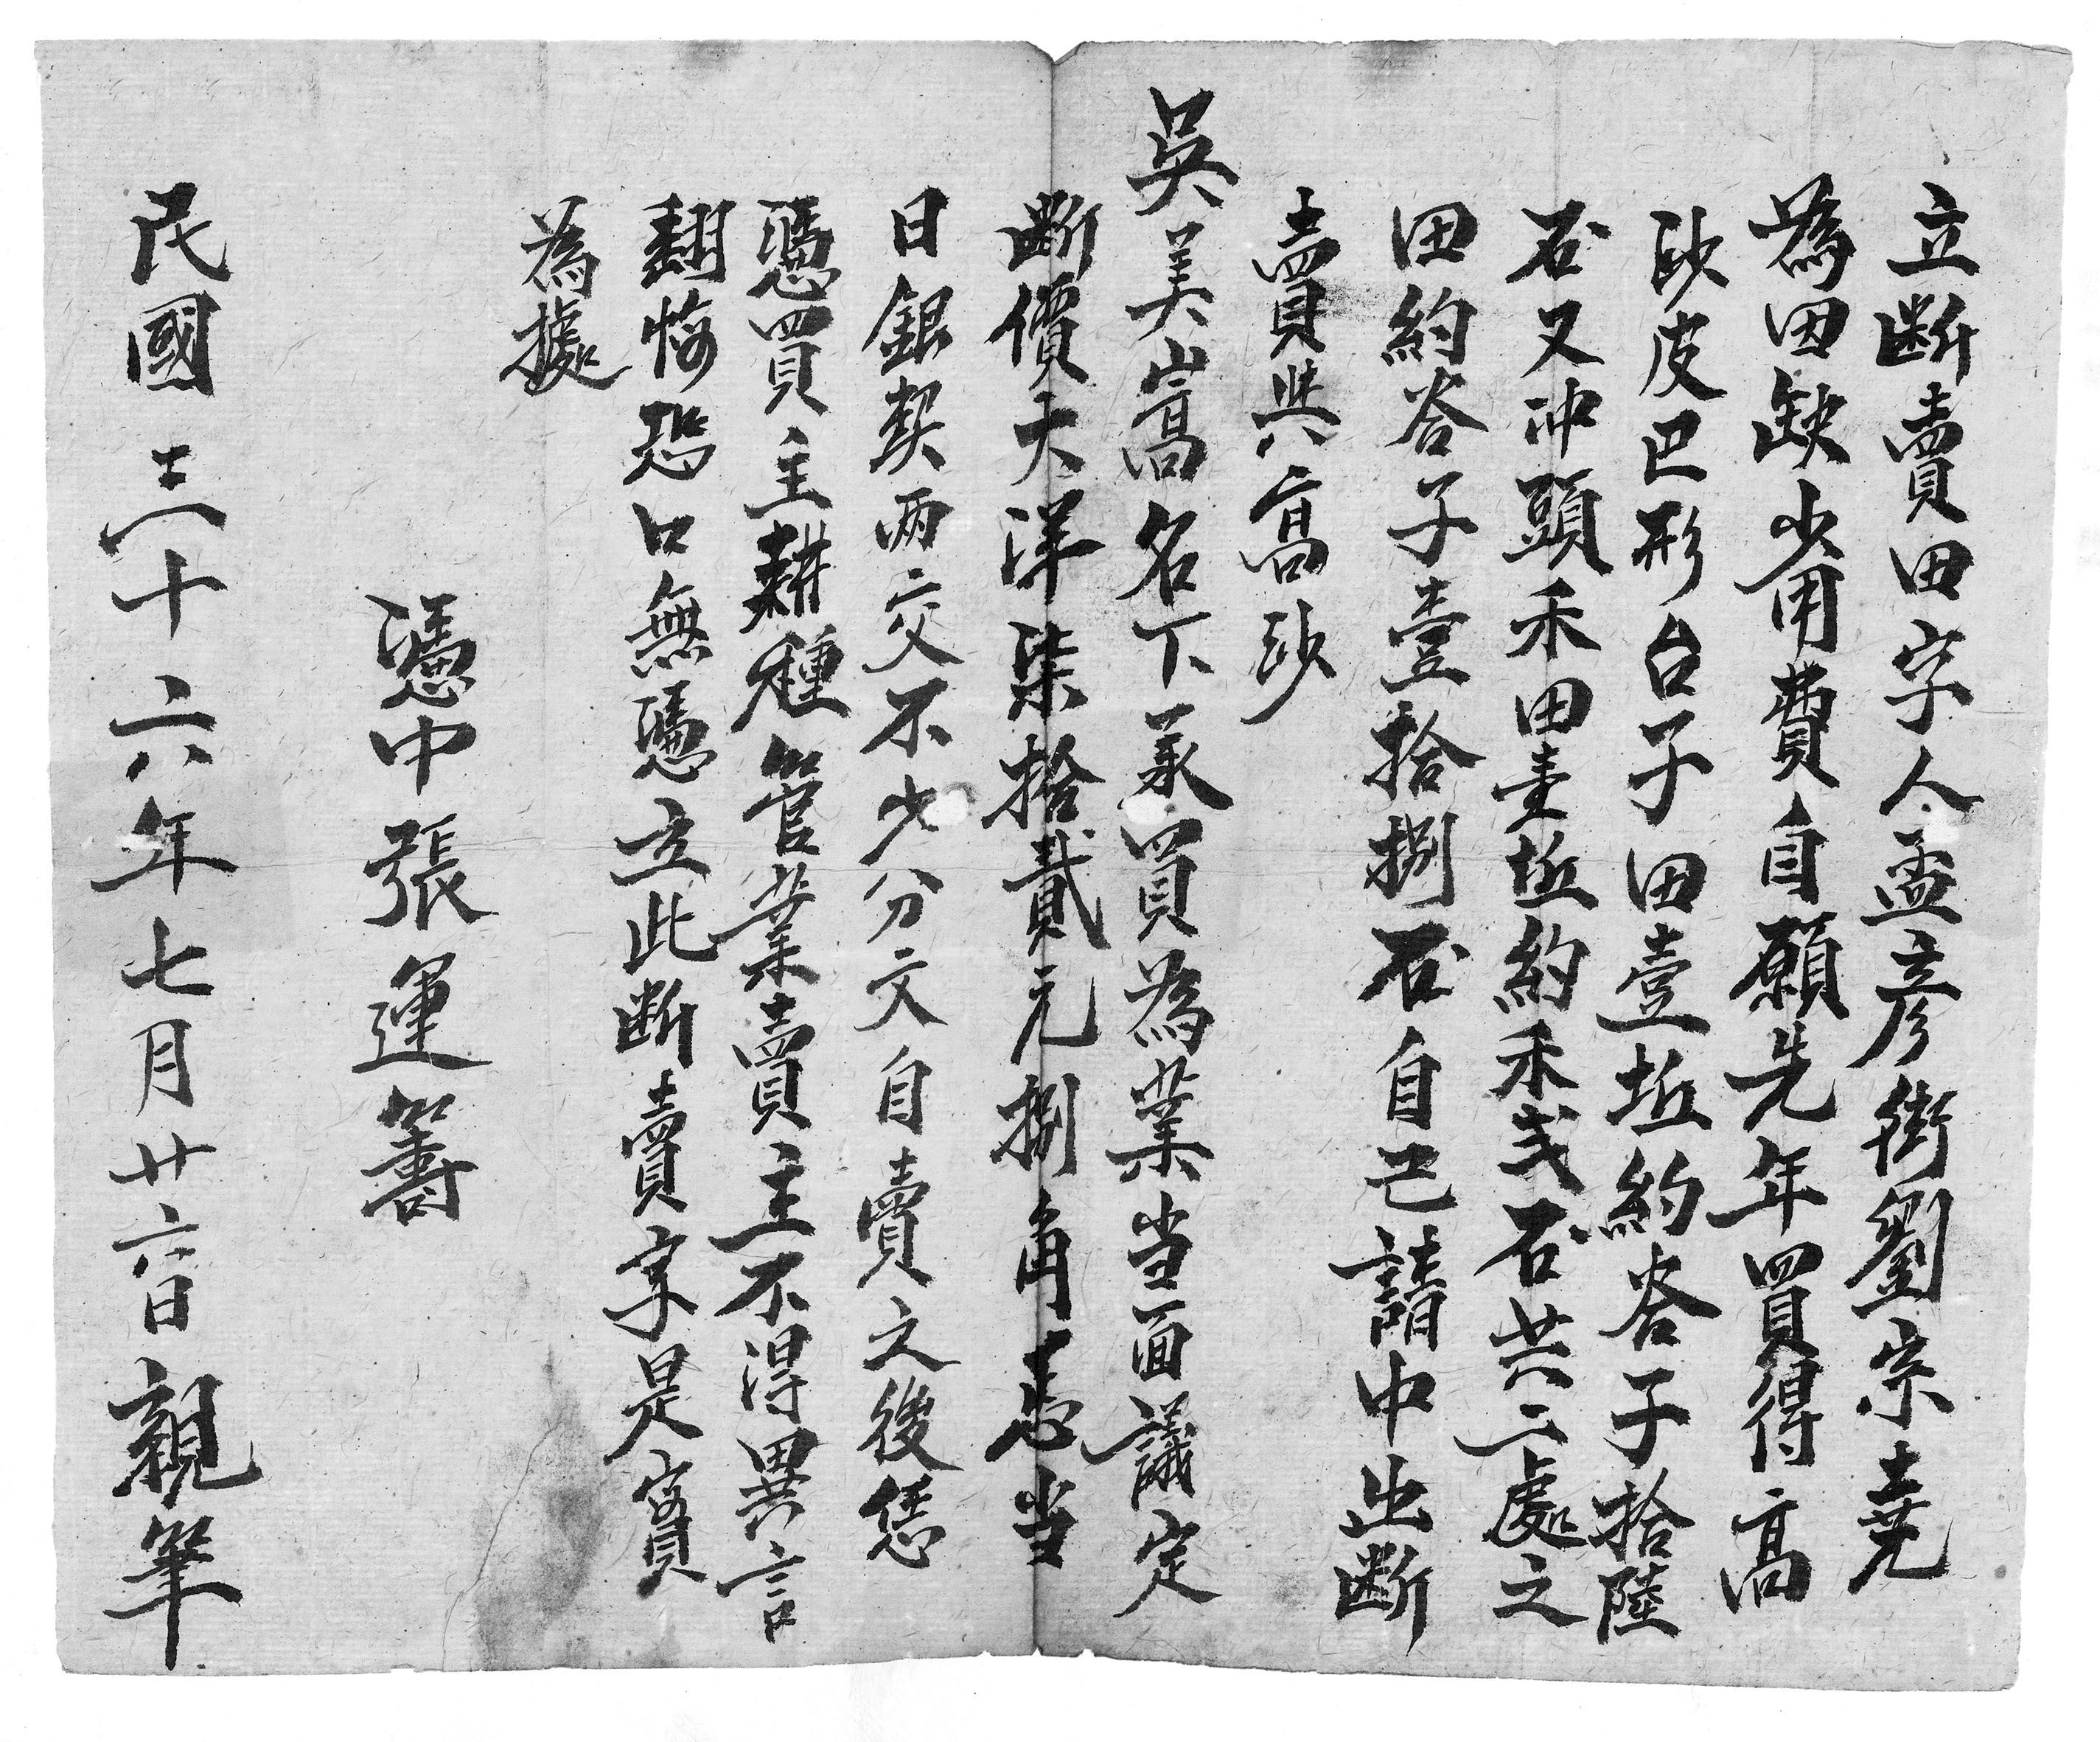 立断賣田字人孟彦街劉宗堯
為田缺少用費自願先年買得高
沙皮巴形台子田壹坵約谷子拾陸
石又冲頭禾田壹坵約禾弍石共二處之
田約谷子壹拾捌石自己請中出断
賣與高沙
吳美嵩名下承買為業当面議定
断價大洋柒拾貳元捌角正当
日銀契兩交不少分文自賣之後恁
憑買主耕種管業賣主不得異言
翻悔恐口無憑立此断賣字是實
為據
憑中張運籌
民國三十六年七月廿六日親筆